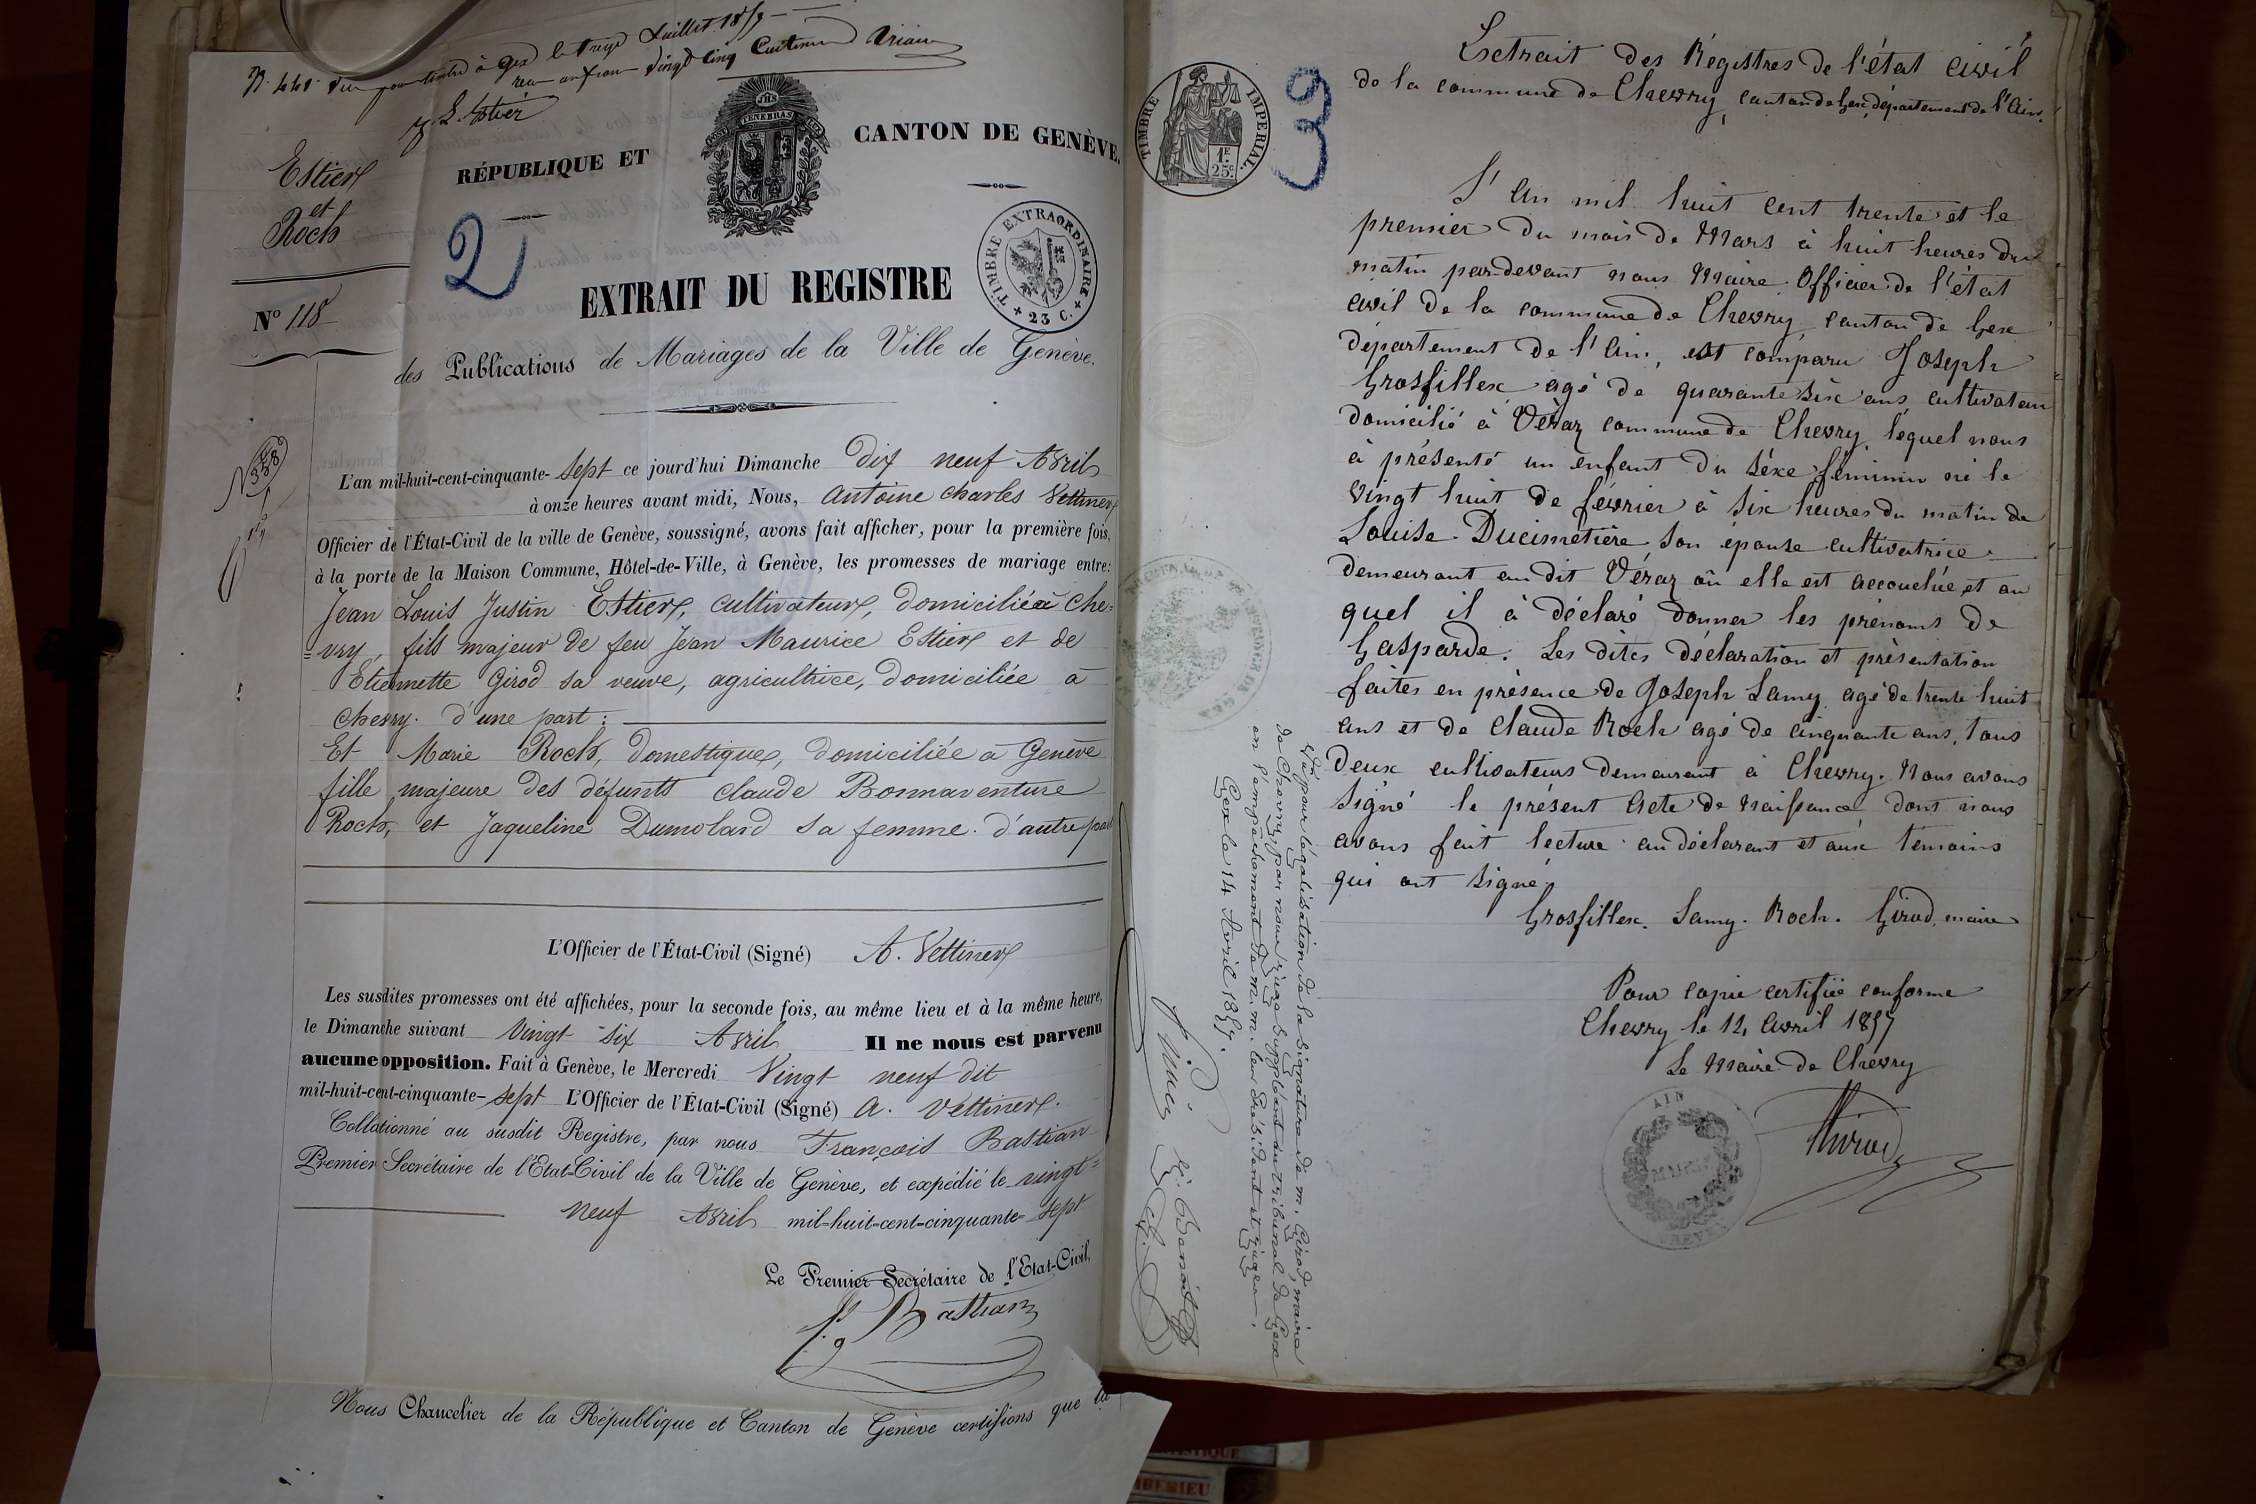 Juillet 1857
vingt cinq centimes
Estier
et
Roch
N° 118
358
2
RÉPUBLIQUE ET
CANTON DE GENÈVE.
JHS
POST TENEBRAS LUX
TIMBRE EXTRAORDINAIRE
23 C.
EXTRAIT DU REGISTRE
des Publications de Mariages de la Ville de Genève.
L'an mil-huit-cent-cinquante-sept ce jourd'hui Dimanche dix neuf Avril
à onze heures avant midi, Nous, Antoine Charles Vettiner
Officier de l'État-Civil de la ville de Genève, soussigné, avons fait afficher, pour la première fois,
à la porte de la Maison Commune, Hôtel-de-Ville, à Genève, les promesses de mariage entre:
Jean Louis Justin Estier, cultivateur, domicilié à Che=
=vry, fils majeur de feu Jean Maurice Estier et de
Etiennette Girod sa veuve, agricultrice, domiciliée à
Chevry. d'une part:
Et Marie Roch, domestique, domiciliée à Genève
fille majeure des défunts Claude Bonnaventure
Roch, et Jaqueline Dumolard sa femme. d'autre part
L'Officier de l'État-Civil (Signé) A. Vettiner
Les susdites promesses ont été affichées, pour la seconde fois, au même lieu et à la même heure,
le Dimanche suivant Vingt-six Avril Il ne nous est parvenu
aucune opposition. Fait à Genève, le Mercredi Vingt neuf dit
mil-huit-cent-cinquante-sept L'Officier de l'État-Civil (Signé) A. Vettiner.
Collationné au susdit Registre, par nous François Bastian
Premier Secrétaire de l'Etat-Civil de la Ville de Genève, et expédié le vingt=
neuf Avril mil-huit-cent-cinquante-sept
Le Premier Secrétaire de l'Etat-Civil,
F. Bastian
Nous Chancelier de la République et Canton de Genève certifions que la
TIMBRE IMPERIAL.
1F.
25c
39
Extrait des Régistres de l'état civil
de la commune de Chevry, canton de Gex, département de l'Ain.
L'an mil huit cent trente et le
premier du mois de Mars à huit heures du
matin par-devant nous Maire Officier de l'état
civil de la commune de Chevry, canton de Gex
département de l'Ain, est comparu Joseph
Grosfillex agé de quarante six ans, cultivateur
domicilié à Véraz commune de Chevry, lequel nous
à présenté un enfant du séxe féminin né le
vingt huit de février à six heures du matin de
Louise Ducimetière son épouse cultivatrice
demeurant au dit Véraz où elle est accouchée, et au
quel il à déclaré donner les prénoms de
Gasparde. Les dites déclaration et présentation
faites en présence de Joseph Lamy agé de trente huit
ans et de Claude Roch agé de cinquante ans, tous
deux cultivateurs demeurant à Chevry. Nous avons
signé le présent acte de naissance dont nous
avons fait lecture au déclarant et aux témoins
qui ont signé.
Grosfillex. Lamy. Roch. Girod, maire
Pour copie certifiée conforme
Chevry le 12 Avril 1857
Le Maire de Chevry
Girod
AIN
MAIRIE
Vu pour légalisation de la signature de M. Girod, maire
de Chevry, par nous juge suppléant du tribunal de Gex
en l'empêchement de M.M. les Président et juges.
Gex le 14 Avril 1857.